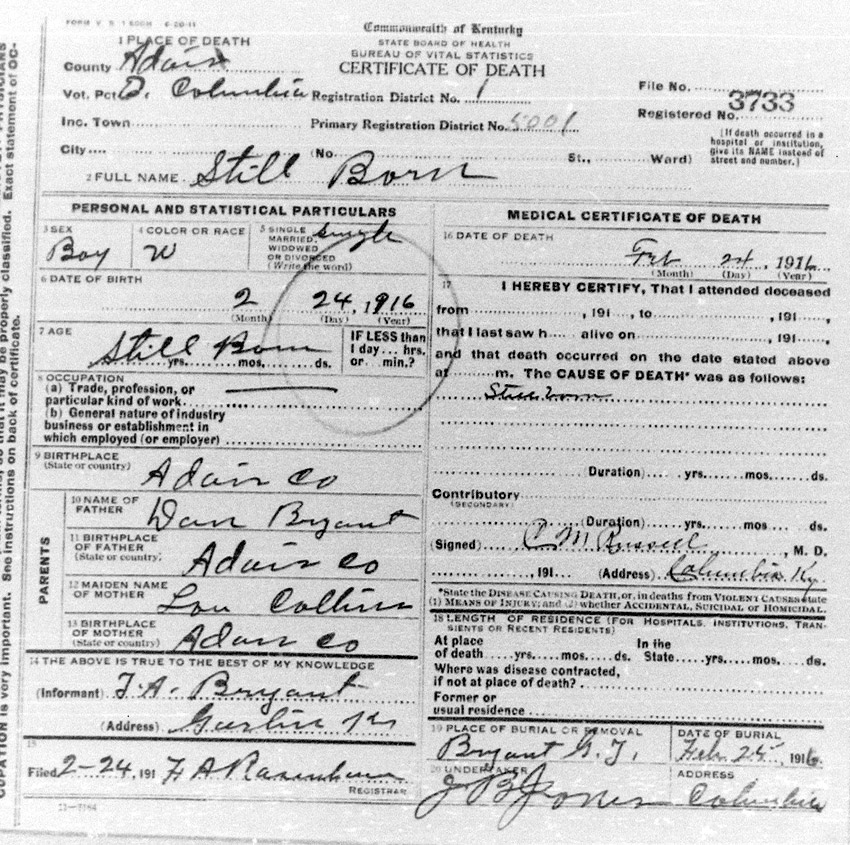 FORM V. S. 1
Commonwealth of Kentucky
STATE BOARD OF HEALTH
BUREAU OF VITAL STATISTICS
CERTIFICATE OF DEATH
1 PLACE OF DEATH
County Adair
Vot. Pct D. Columbia Registration District No. 1
File No.
3733
Registered No.
Inc. Town Primary Registration District No. 5001
(If death occurred in a hospital or institution, give its NAME instead of street and number.)
City (No. St., Ward)
2 FULL NAME Still Born
PERSONAL AND STATISTICAL PARTICULARS
3 SEX Boy
4 COLOR OR RACE W
5 SINGLE MARRIED, WIDOWED OR DIVORCED (Write the word) single
6 DATE OF BIRTH
2 24, 1916
(Month) (Day) (Year)
7 AGE
Still Born
yrs. mos. ds.
IF LESS than 1 day... hrs. or... min.?
8 OCCUPATION
(a) Trade, profession, or
particular kind of work
(b) General nature of industry
business or establishment in
which employed (or employer)
9 BIRTHPLACE
(State or country)
Adair Co
PARENTS
10 NAME OF FATHER Dan Bryant
11 BIRTHPLACE OF FATHER (State or country) Adair Co
12 MAIDEN NAME OF MOTHER Lou Collins
13 BIRTHPLACE OF MOTHER (State or country) Adair Co
14 THE ABOVE IS TRUE TO THE BEST OF MY KNOWLEDGE
(Informant) J. A. Bryant
(Address) Garlin Ky
15
Filed 2-24, 191
REGISTRAR
11-3184
MEDICAL CERTIFICATE OF DEATH
16 DATE OF DEATH
Feb 24, 1916
(Month) (Day) (Year)
17
I HEREBY CERTIFY, That I attended deceased
from , 191 , to , 191 ,
that I last saw h alive on , 191 ,
and that death occurred on the date stated above
at m. The CAUSE OF DEATH* was as follows:
Stillborn
(Duration) yrs. mos. ds.
Contributory
(SECONDARY)
(Duration) yrs. mos ds.
(Signed) C M Russell , M. D.
, 191 (Address) Columbia Ky.
*State the DISEASE CAUSING DEATH, or, in deaths from VIOLENT CAUSES state
(1) MEANS OF INJURY; and (2) whether ACCIDENTAL, SUICIDAL or HOMICIDAL.
18 LENGTH OF RESIDENCE (FOR HOSPITALS, INSTITUTIONS, TRANSIENTS OR RECENT RESIDENTS)
At place of death yrs. mos. ds. In the State yrs. mos. ds.
Where was disease contracted,
if not at place of death?
Former or
usual residence
19 PLACE OF BURIAL OR REMOVAL
Bryant G. Y.
DATE OF BURIAL
Feb. 25, 1916
20 UNDERTAKER
J B Jones
ADDRESS
Columbia